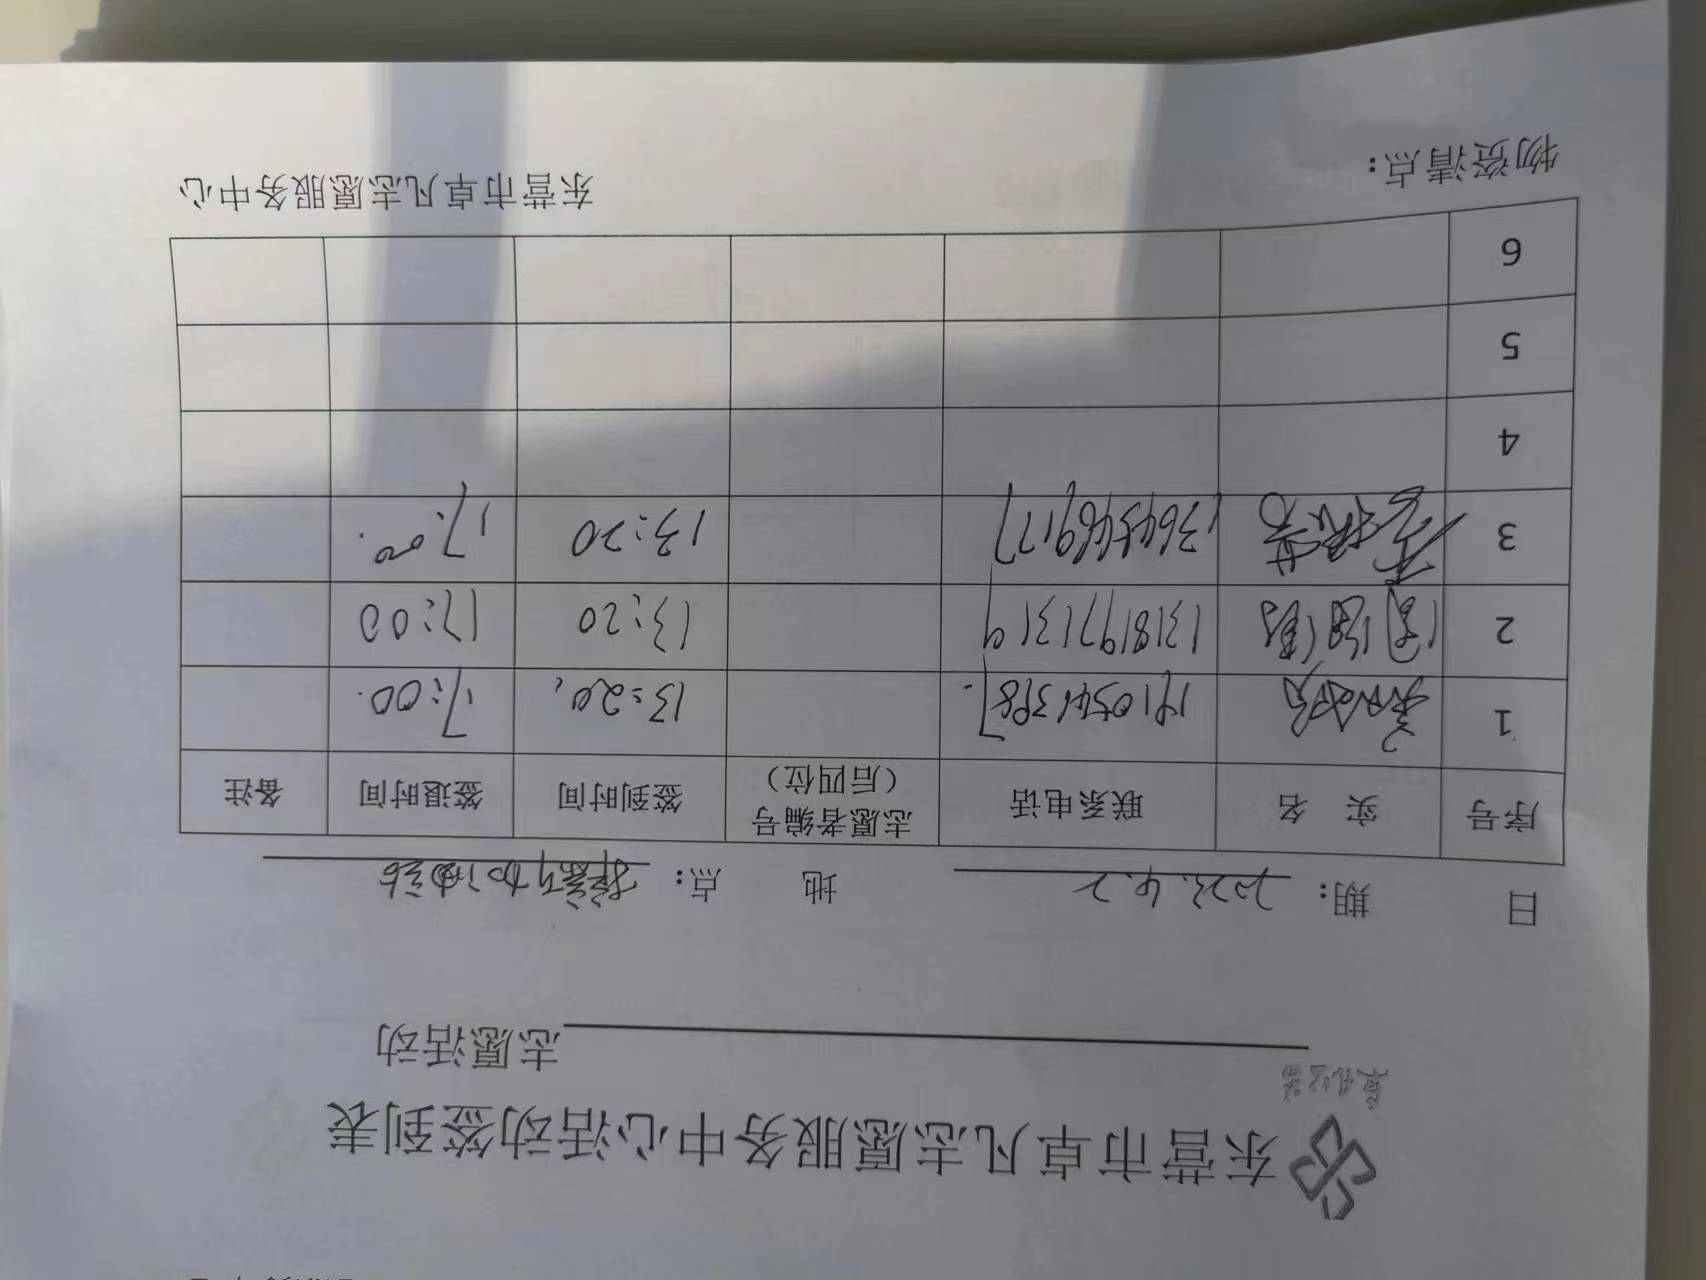 东营市卓凡志愿服务中心活动签到表
志愿活动
日 期： 2023.4.2 地 点： 加油站
序号 实 名 联系电话 志愿者编号（后四位） 签到时间 签退时间 备注
1 13:20 17:00
2 13181971319 13:20 17:00
3 13645469177 13:20 17:00
4
5
6
物资清点： 东营市卓凡志愿服务中心